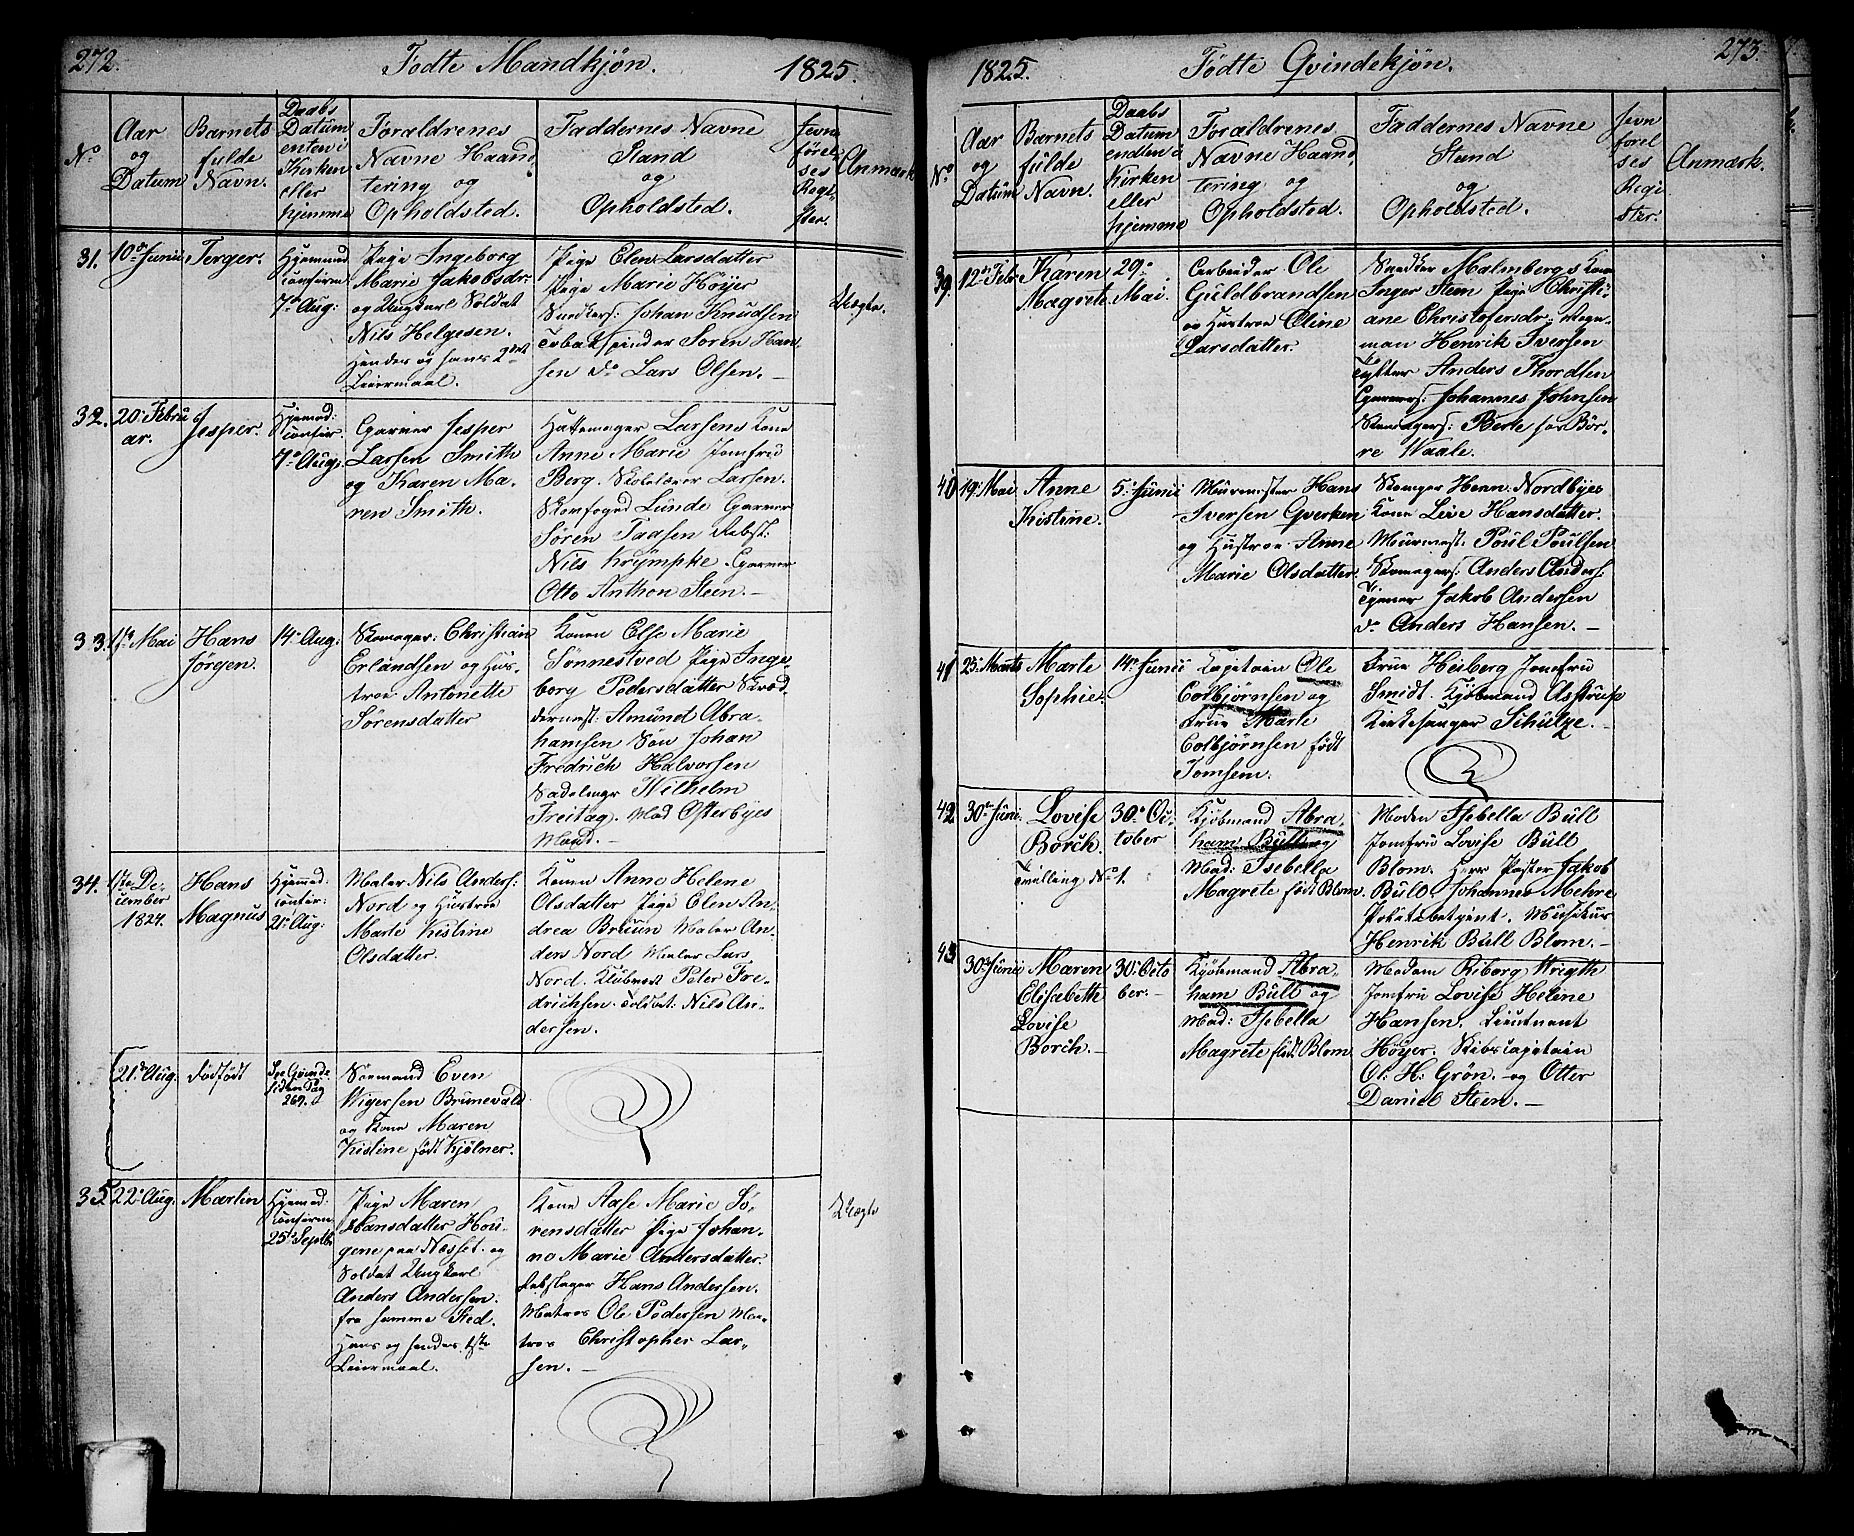 272.
Fødte Mandkjøn. 1825.
No
Aar og Datum
Barnets fulde Navn.
Daabs Datum enten i Kirken eller hjemme
Forældrenes Navne Haandtering og Opholdsted.
Faddernes Navne Stand og Opholdsted.
Jevnførelses Register.
Anmærk
31. 10de Junii Terger.
Hjemmed Confirm 7de Aug:
Pige Ingeborg
Marie Jakobsdr
og Ungkarl Soldat
Nils Helgesen.
Hendes og hans 2det
Leiermaal.
Pige Elen Larsdatter
Pige Marie Höyer
Snedkers: Johan Knudsen
Tobakspinder Sören Han-
sen do Lars Olsen. —
Uægte.
32. 20de Febru
ar.
Jesper.
Hjemmed: Confir. 7de Aug:
Garver Jesper
Larsen Smith
og Karen Ma-
ren Smith.
Hattemager Larsens Kone
Anne Marie Jomfru
Berg. Skolelærer Larsen.
Skomfoged Lunde Garver
Sören Taasen Rebsl:
Nils Krÿmpke. Garver
Otto Anthon Steen. —
33. 1ste Mai
Hans
Jörgen.
14de Aug:
Skomager: Christian
Erlandsen og Hus-
troe Antonette
Sörensdatter
Konen Else Marie
Sönnestved Pige Inge-
borg Pedersdatter Skræd-
dermest: Amund Abra-
hamsen Sön Johan
Fredrich Halvorsen
Sadelmgr Wilhelm
Freitag. Mad Osterbyes
Mand. —
34. 1ste De-
cember
1824.
Hans
Magnus
Hjemmed:
Confir:
21de Aug:
Maler Nils Anders:
Nord og Hustroe
Marte Kistine
Olsdatter.
Konen Anne Helene
Olsdatter Pige Elen An-
drea Bruun Maler An-
ders Nord Maler Lars
Nord. Klubvert Peter Fre-
drichsen. Soldat. Nils An-
dersen.
21de Aug. dödfödt
269.
Sömand Even
Wigersen Brunevald
og Kone Maren
Kistine födt Kjölner.
35 22de Aug. Martin
Hjemmed:
Confirm
25de Septb.
Pige Maren
Hansdatter Hou-
gene paa Næsset. og
Soldat Ungkarl
Anders Andersen.
fra samme Sted.
Hans og hendes 1ste
Leiermaal.
Kone Aase Marie Sö-
rensdatter Pige Johan-
ne Marie Andersdatter.
Rebslager Hans Andersen.
Matros Ole Pedersen Ma-
tros Christopher Lar-
sen. —
Uægte
273.
1825. Fødte Qvindekjön.
No
Aar og Datum
Barnets fulde Navn.
Daabs Datum endten i Kirken eller hjemme
Forældrenes Navne Haandtering og Opholdsted.
Faddernes Navne Stand og Opholdsted.
Jevnforelses Register.
Anmærk.
39. 12te Febr
Karen
Magrete.
29de
Mai.
Arbeider Ole
Guldbrandsen
og Hustroe Oline
Larsdatter.
Snedker Malmbergs Kone
Inger Steen Pige Christi-
ane Christofersdr Vogn-
man Henrik Iversen
Tytter Anders Thordsen
Garvers: Johannes Johnsen
Skomagers: Berle for Bör-
re Waale.
40 19de Mai
Anne
Kistine.
5te Junii
Muurmester Hans
Iversen Gverken
og Hustroe Anne
Marie Olsdatter.
Skomger Herm: Nordbyes
Kone Live Hansdatter.
Muurmest. Poul Poulsen
Skomagers: Anders Anders:
Tjener Jakob Andersen
do Anders Hansen. —
41 23de Marts
Marte
Sophie.
14de Junii
Kapetain Ole
Colbjörnsen og
Frue Marte
Colbjörnsen födt
Tomsem.
Frue Heiberg Jomfru
Smidt. Kjöbmand Astrup
Kirkesanger Schulze. —
42 30te Juni.
Lovise
Borch.
Tvilling No 1.
30te Oc-
tober
Kjöbmand Abra-
ham Bull og
Mad: Isebella
Magrete födt Blom.
Madm Isebella Bull
Jomfru Lovise Bull
Blom. Herr Paster Jakob
Bull Johannes Mehre
Henrik Bull Blom. —
43 30te Junii
Maren
Elisabethe
Lovise
Borch. —
30te Octo
ber. —
Kjöbmand Abra-
ham Bull og
Mad: Isebella
Magrete födt Blom
Madam Riborg Wrigth
Jomfru Lovise Helene
Hansen. Lieutnant
Höyer. Skibscapetain
Ol: H: Grön. og Otter
Daniel Steen. —